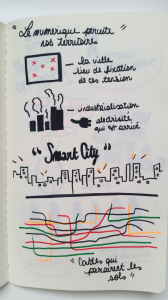 "Le numérique percute
nos territoires"
- la ville
lieu de fixation
de ces tension
- industrialisation
electricité
qui est arrivé
"Smart City"
"Cables qui
parcourent les
sols"